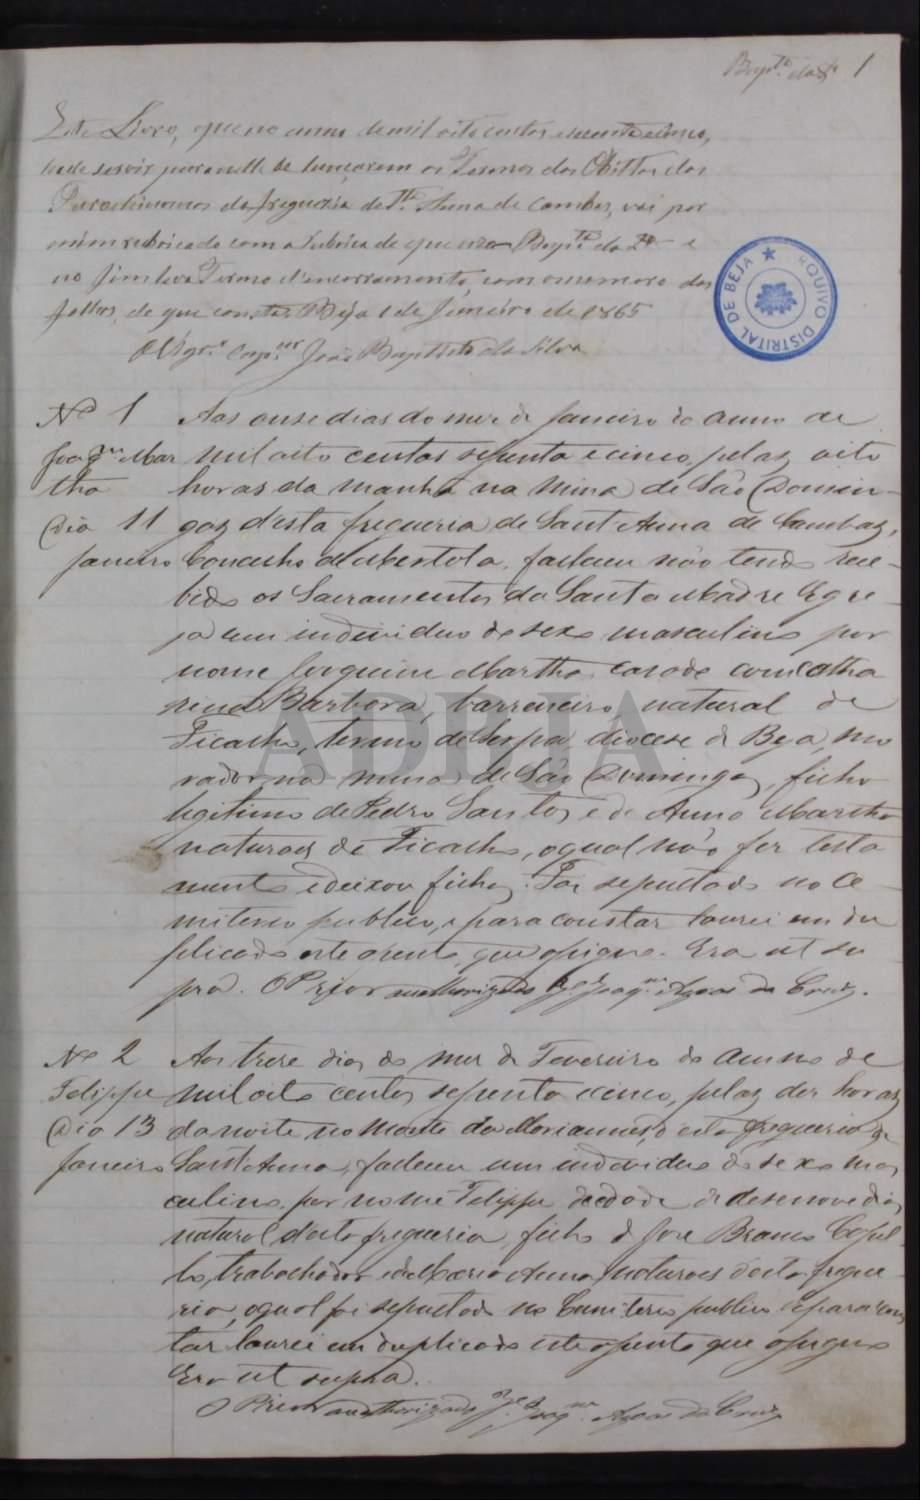 Bapt.ta da S.a 1
Este Livro, que no anno de mil oito centos secenta e cinco,
hade servir para nelle se lançarem os Termos dos Obittos dos
Parochianos da freguezia de St.a Anna de Cambas, vai por
mim rubricado com a rubrica de que uso Bap.ta da S.a e
no fim leva Termo d'encerramento, com o numero das
folhas, de que consta. Béja 1 de Janeiro de 1865
O Vigr.o Cap.ar João Baptista da Silva
ARQUIVO DISTRITAL DE BEJA
ADBJA
Nº 1 Aos onse dias do mez de Janeiro do anno de
Joaq.m Mar mil oito centos sessenta e cinco, pelas oito
tha horas da manhã na Mina de São Domin-
Dia 11 gos d'esta freguezia de Sant'Anna de Cambas,
Janeiro Concelho de Mertola, faleceu não tendo rece-
bido os Sacramentos da Santa Madre Egre-
ja um individuo do sexo masculino por
nome Joaquim Martha, casado com Catha
rina Barbora, barreneiro, natural de
Ficalho, termo de Serpa, diocese de Beja, mo
rador na mina de São Domingos, filho
legitimo de Pedro Santos e de Anna Martha
naturaes de Ficalho, o qual não fez testa
mento e deixou filhos. Foi sepultado no Ce-
miterio publico, e para constar lavrei em du
plicado este assento que assigno. Era ut su
pra. O Prior authorizado Joaq.m Agoas da Cruz.
Nº 2 Aos trese dias do mez de Fevereiro do anno de
Felippe mil oito centos sessenta e cinco, pelas dez horas
Dia 13 da noite no Monte da Mariannes, d'esta freguezia de
Janeiro Sant'Anna, faleceu um individuo do sexo mas
culino, por nome Felippe de edade de desenove dias
natural d'esta freguezia, filho de José Branco
trabalhador e de Maria Anna, naturaes d'esta fregue
zia, o qual foi sepultado no Cemiterio publico e para cons
tar lavrei em duplicado este assento que assigno
Era ut supra.
O Prior authorizado Joaq.m Agoas da Cruz